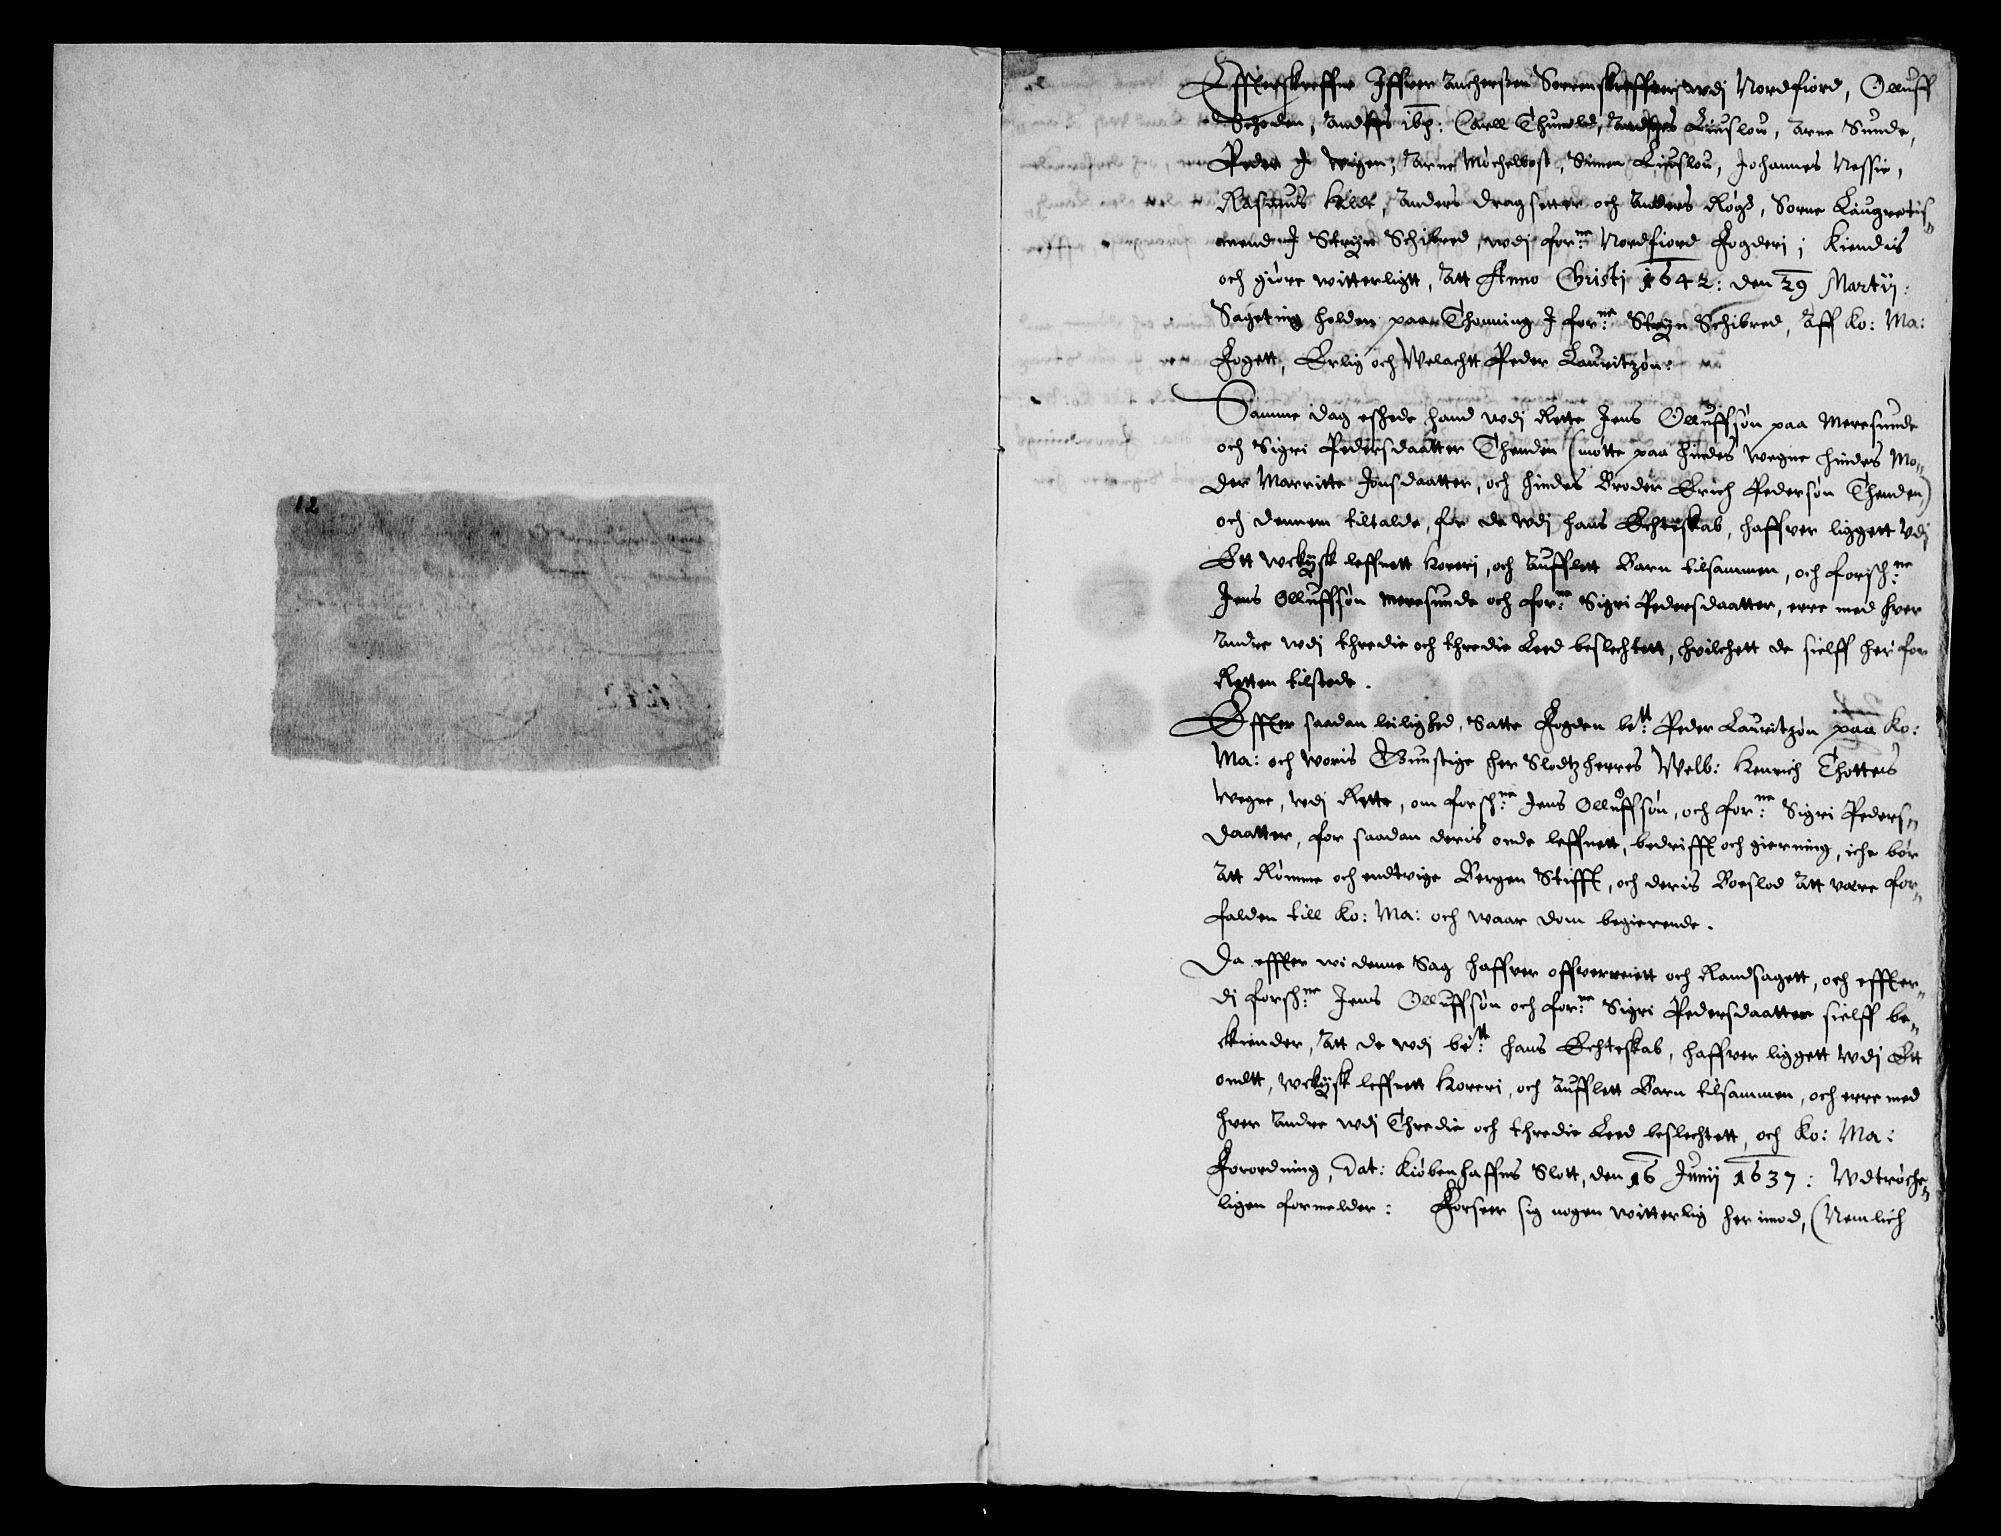 12
Effterskreffne Iffver Anchersen Sorrenskriffver wdj Nordfiord, Olluff
Schoden, Anders ibd: Carll Thunold, Anders Liuslou, Arne Sunde,
Peder J Wigen, Arne Mòchelbost, Simen Liuslou, Johannes Nessie,
Rasmus Kilde, Anders Dragsetter och Anders Rògs, Sorne Laugrettis-
mend J Stryn Schibred, wdj for:ne Nordfiord Fogderi; Kiendis
och giòre witterligtt, Att Anno Christi 1642: den 29 Martij:
Sageting holden paa Thonning J for:ne Stryn Schibred, Aff Ko: Ma:
Fogett, Erlig och Welachtt Peder Lauritzòn:
Samme dag eschede hand wdj Rette Jens Olluffsòn paa Meresunde
och Sigri Pedersdaatter Thenden (mòtte paa hindes wegne hindes Mo-
der Marritte Jonsdaatter, och hindes Broder Erich Pedersòn Thenden)
och dennem tiltalde, for de wdj hans Echteskab, haffver liggett wdj
Ett wckysk leffnett Horeri, och Aufflett Barn tilsammen, och forsch:ne
Jens Olluffsòn Meresunde och for:ne Sigri Pedersdaatter, erre med hver
Andre wdj thredie och thredie Leed beslechtett, hvilchett de sielff her for
Retten tilstode.
Effter saadan leilighed, Satte Fogden be:tt Peder Lauritzòn paa Ko:
Ma: och woris Gunstige her Slodtzherres Welb: Henrich Thotteis
wegne, wdj Rette, om forsch:ne Jens Olluffsòn, och for:ne Sigri Peders-
daatter, for saadan deris onde leffnett, bedrifft och gierning, iche bòr
Att Ròmme och endtvige Bergen Stifft, och deris Boeslod Att være for-
falden till Ko: Ma: och waar dom begierende.
Da effter wi denne Sag haffver offverveiett och Randsagett, och effter-
di forsch:ne Jens Olluffsòn och for:ne Sigri Pedersdaatter sielff be-
ckiender, Att de wdj be:tt hans Echteskab, haffver liggett wdj Ett
ondtt, wckysk leffnett Horeri, och Aufflett Barn tilsammen, och erre med
hver Andre wdj Thredie och thredie Leed beslechtett, och Ko: Ma:
Forordning, Dat: Kiòbenhaffns Slott, den 16 Junij 1637: Wdtròche-
ligen formelder: Forseer sig nogen witterlig her imod, (Nemlich